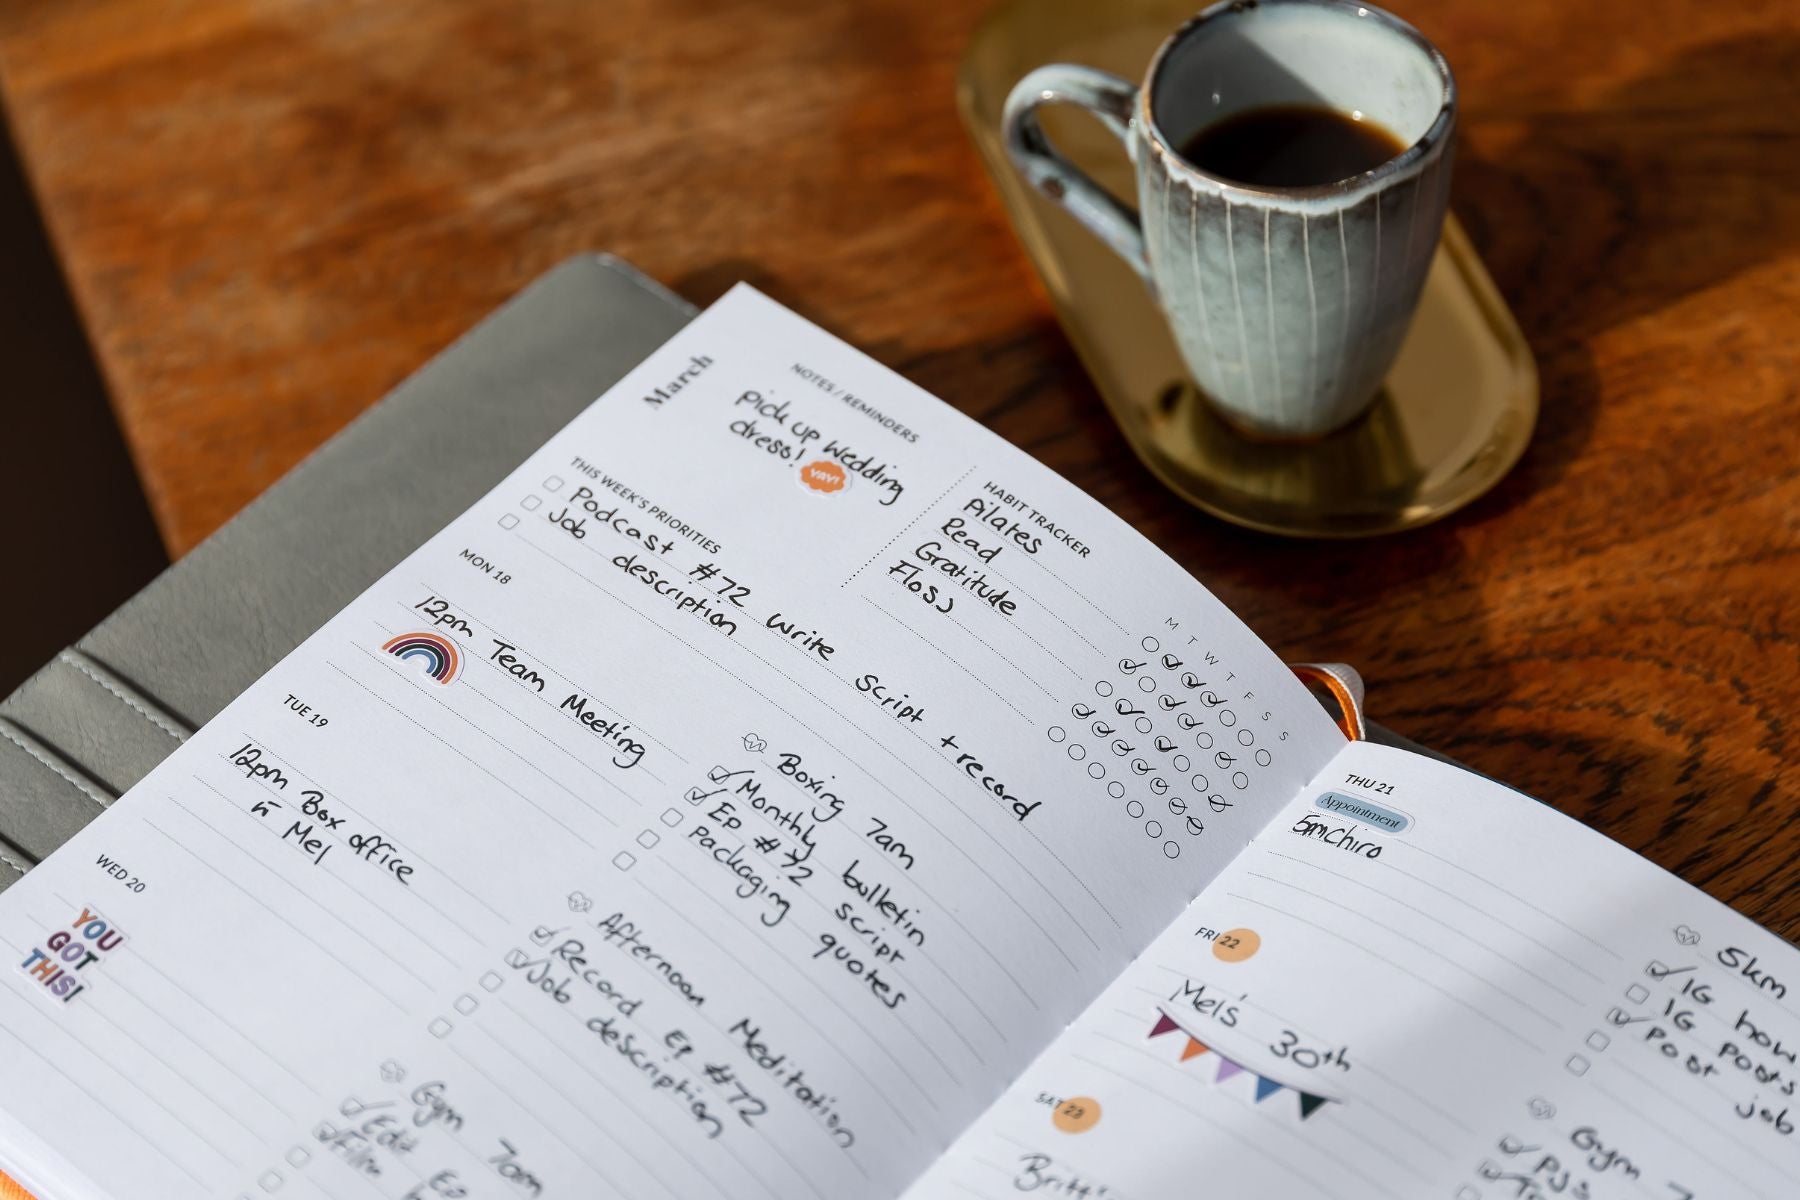 March
NOTES / REMINDERS
Pick up wedding
dress!
YAY!
THIS WEEK'S PRIORITIES
Podcast #72 write script + record
Job description
HABIT TRACKER
Pilates
Read
Gratitude
Floss
M T W T F S S
MON 18
12pm Team Meeting
Boxing 7am
Monthly bulletin
Ep #72 script
Packaging quotes
TUE 19
12pm Box office
w Mel
Afternoon Meditation
Record Ep #72
Job description
WED 20
YOU
GOT
THIS!
Gym 7am
Edit Ep
Film
THU 21
Appointment
5pm Chiro
5km
IG how
IG posts
Post job
FRI 22
Mel's 30th
Gym 7
SAT 23